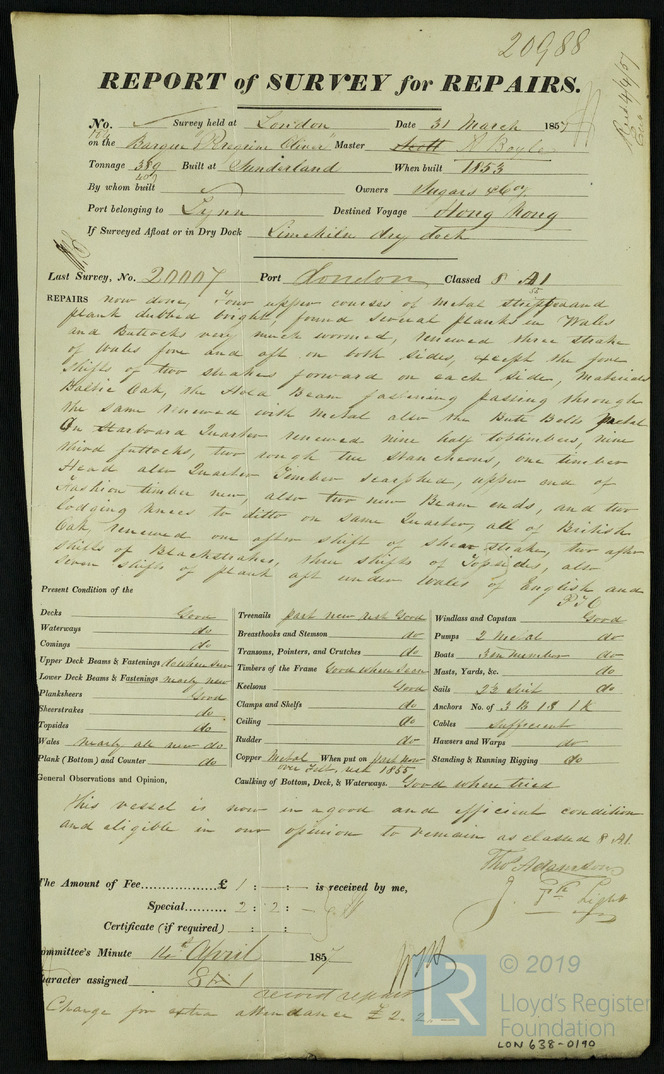 20988
REPORT of SURVEY for REPAIRS.
No. Survey held at London Date 31 March 1857
on the Barque "Peregrine Oliver" Master Scott A Boyle
Tonnage 389 Built at Sunderland When built 1853
407
By whom built Owners Sugars & Coy
Port belonging to Lynn Destined Voyage Hong Kong
If Surveyed Afloat or in Dry Dock Limekiln dry dock
Last Survey, No. 20007 Port London Classed 8 A1
REPAIRS now done, Four upper courses of metal stripped and
plank dubbed bright, found several planks in Wales
and Buttocks very much wormed, renewed three strakes
of Wales fore and aft on both sides, except the fore
shifts of two strakes forward on each side, Materials
Baltic Oak, the Hold Beam fastening passing through
the same renewed with metal also the Butt Bolts metal
On Starboard Quarter renewed nine half toptimbers, nine
third futtocks, two rough tree stancheons, one timber
Head also Quarter Timber scarphed, upper end of
Fashion timber new, also two new Beam ends, and two
lodging knees to ditto on same Quarter, all of British
Oak, renewed one after shift of shear strake, two after
shifts of Blackstrakes, three shifts of Topsides, also
seven shifts of plank aft under Wales of English and
PTO
Present Condition of the
Decks Good
Waterways do
Comings do
Upper Deck Beams & Fastenings do where seen
Lower Deck Beams & Fastenings nearly new
Planksheers Good
Sheerstrakes do
Topsides do
Wales nearly all new do
Plank (Bottom) and Counter do
Treenails part new rest Good
Breasthooks and Stemson do
Transoms, Pointers, and Crutches do
Timbers of the Frame Good where seen
Keelsons Good
Clamps and Shelfs do
Ceiling do
Rudder do
Copper Metal When put on part now
over Felt, rest 1855
Caulking of Bottom, Deck, & Waterways. Good when tried
Windlass and Capstan Good
Pumps 2 Metal do
Boats 3 in number do
Masts, Yards, &c. do
Sails 2 Suit do
Anchors No. of 3 B 1 S 1 K
Cables Sufficient
Hawsers and Warps do
Standing & Running Rigging do
General Observations and Opinion,
This vessel is now in a good and efficient condition
and eligible in our opinion to remain as classed 8 A1
Thos Adamson
J. Light
The Amount of Fee £ 1 : - : - is received by me,
Special 2 : 2 : -
Certificate (if required) : :
Committee's Minute 14th April 1857
Character assigned 8 A 1
record repairs
Charge for extra attendance £ 2. 2. -
© 2019
LR
Lloyd's Register
Foundation
LON 638-0190